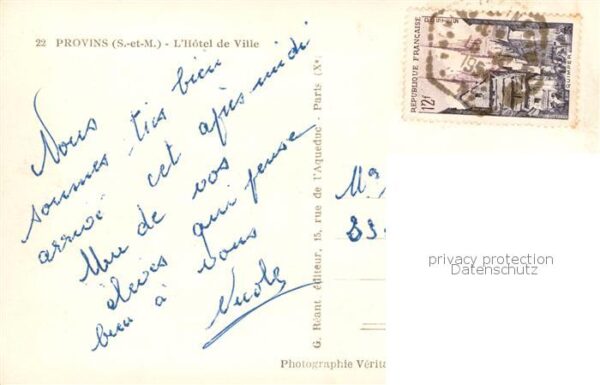 22 PROVINS (S.-et-M.) - L'Hôtel de Ville
Nous
sommes très bien
arrivé cet après midi
Une de vos
élèves qui pense
bien à vous
Nicole
G. Réant éditeur, 15, rue de l'Aqueduc - Paris (Xe
Photographie Vérita
REPUBLIQUE FRANÇAISE
12f
QUIMPER
33
privacy protection
Datenschutz